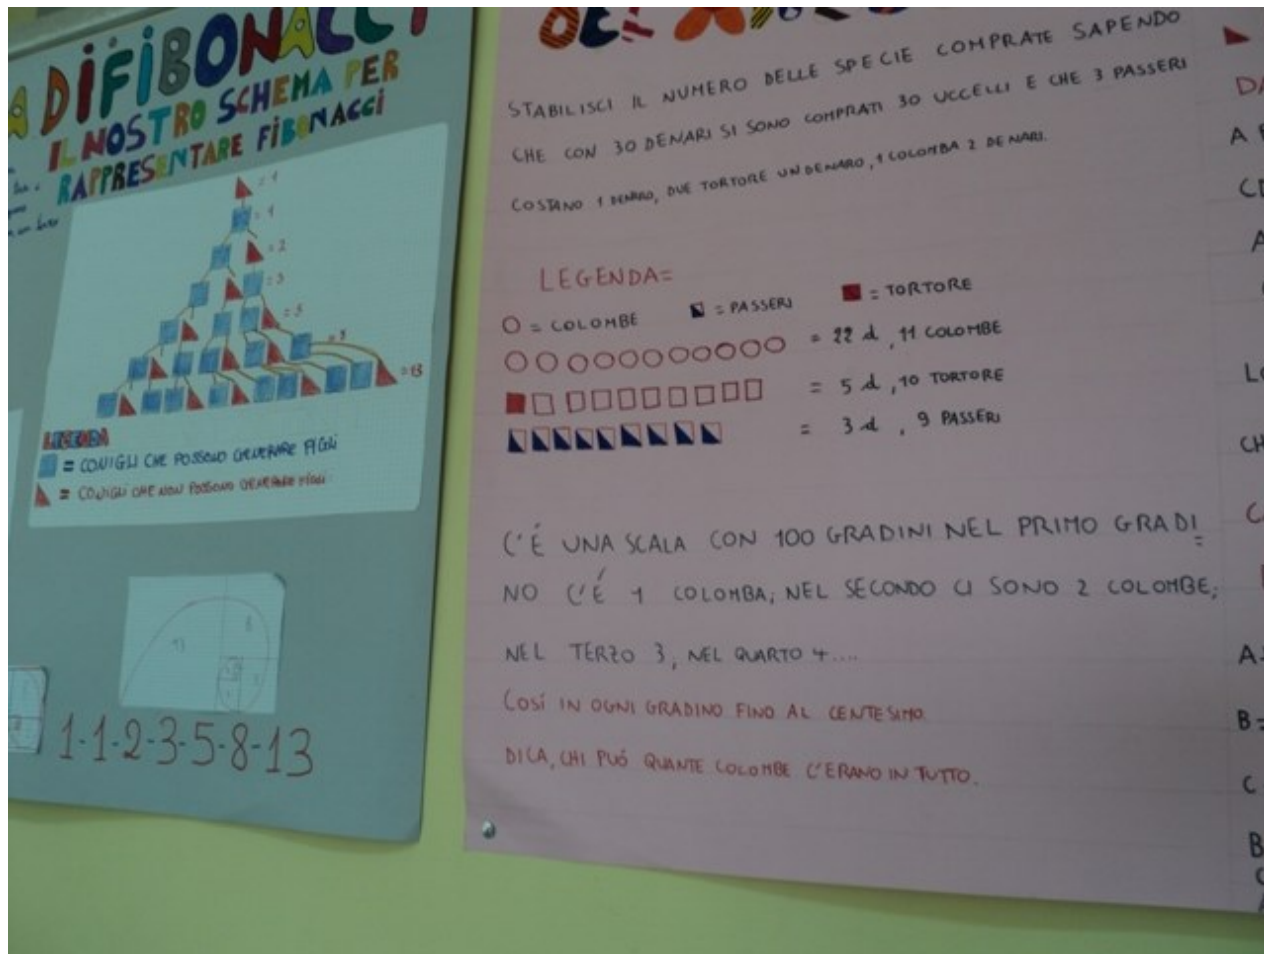 A DI FIBONACCI
IL NOSTRO SCHEMA PER
RAPPRESENTARE FIBONACCI
= 1
= 1
= 2
= 3
= 5
= 8
= 13
LEGENDA
= CONIGLI CHE POSSONO GENERARE FIGLI
= CONIGLI CHE NON POSSONO GENERARE FIGLI
13
8
1-1-2-3-5-8-13
STABILISCI IL NUMERO DELLE SPECIE COMPRATE SAPENDO
CHE CON 30 DENARI SI SONO COMPRATI 30 UCCELLI E CHE 3 PASSERI
COSTANO 1 DENARO, DUE TORTORE UN DENARO, 1 COLOMBA 2 DENARI.
LEGENDA=
= COLOMBE = PASSERI = TORTORE
= 22 d, 11 COLOMBE
= 5 d, 10 TORTORE
= 3 d, 9 PASSERI
C'É UNA SCALA CON 100 GRADINI NEL PRIMO GRADI=
NO C'É 1 COLOMBA; NEL SECONDO CI SONO 2 COLOMBE;
NEL TERZO 3, NEL QUARTO 4....
COSÍ IN OGNI GRADINO FINO AL CENTESIMO.
DICA, CHI PUÓ QUANTE COLOMBE C'ERANO IN TUTTO.
DA
A
A
CH
A=
B=
C
B